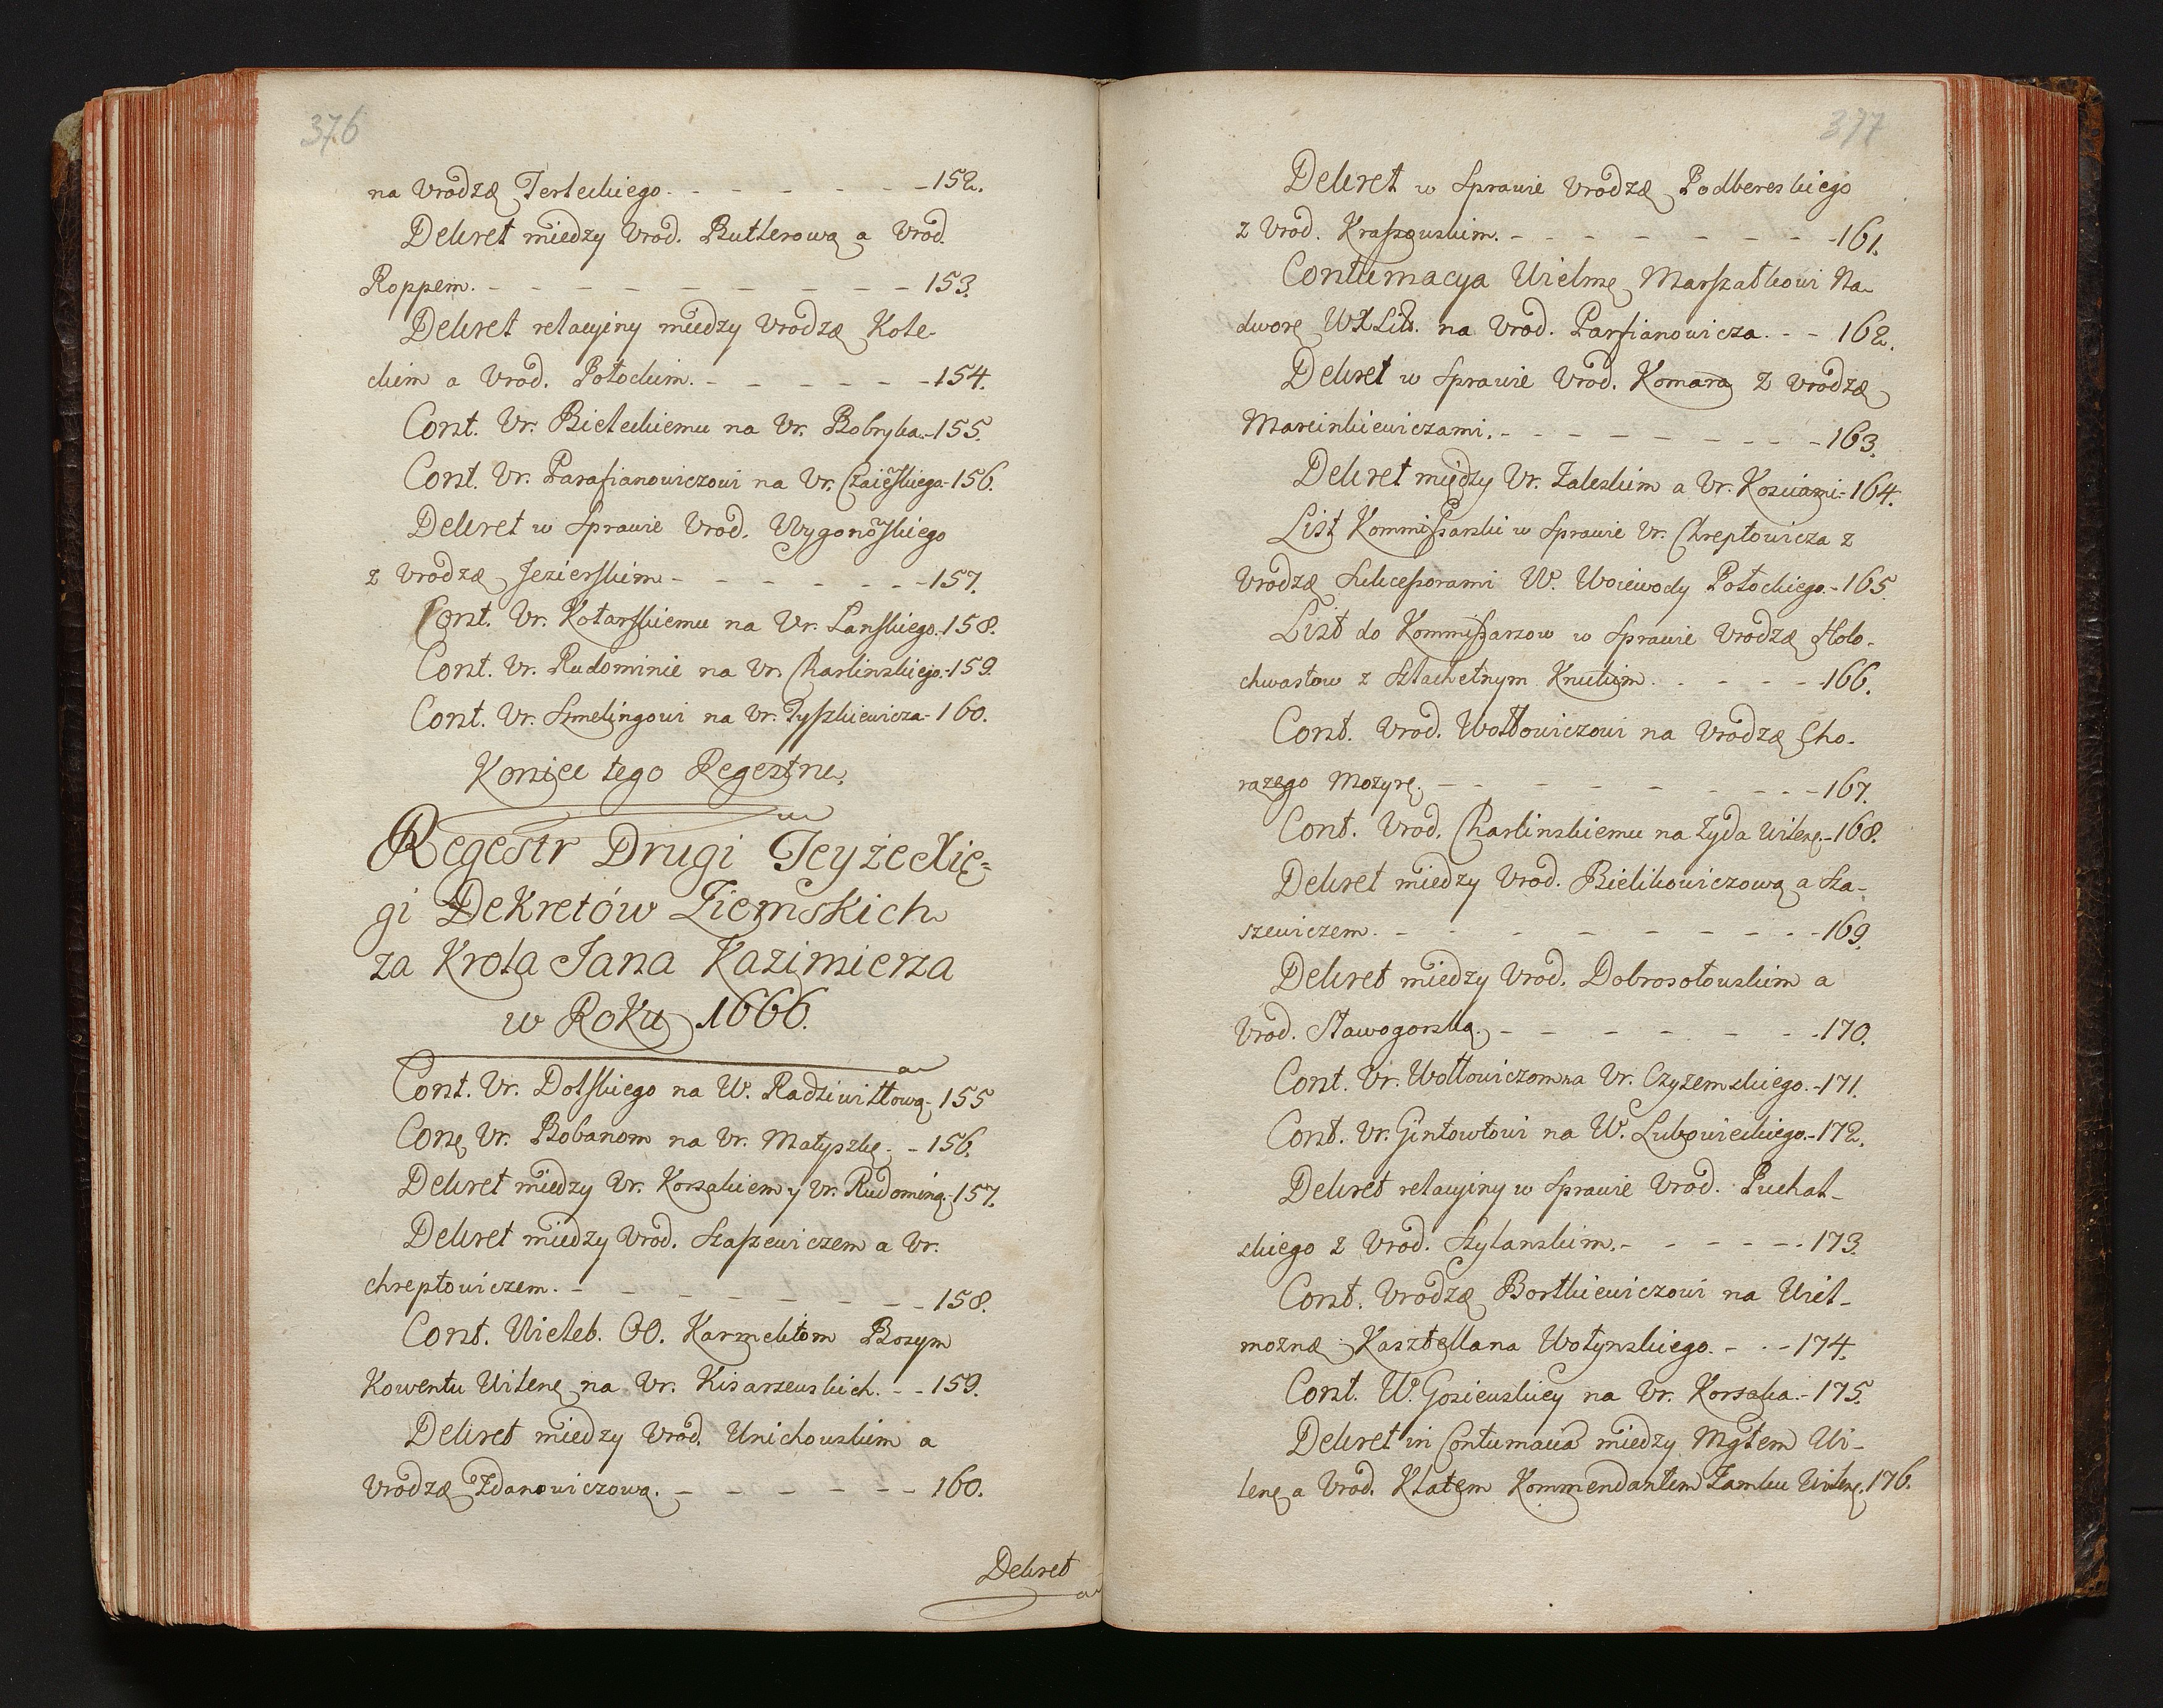 376
na Urodzę Terleckiego. - - - - - - - 152.
Dekret między Urod. Butlerową a Urod.
Roppem. - - - - - - - - - - 153.
Dekret relacyiny między Urodzę Kote-
ckim a Urod. Połockim. - - - - - - 154.
Cont. Ur. Bieleckiemu na Ur. Bobryka. - 155.
Cont. Ur. Parafianowiczowi na Ur. - 156.
Dekret w Sprawie Urod. Wygonoskiego
z Urodzę Jezierskim - - - - - - - 157.
Cont. Ur. Kotarskiemu na Ur. Lanskiego. 158.
Cont. Ur. Rudominie na Ur. Charlinskiego. - 159.
Cont. Ur. Szmelingowi na Ur. Tyszkiewicza - 160.
Koniec tego Regestru.
Regestr Drugi Teyże Xię=
gi Dekretów Ziemskich
za Krola Jana Kazimierza
w Roku 1666.
Cont. Ur. Dolskiego na W. Radziwiłłową - 155
Conę Ur. Bobanom na Ur. Matyszkę. - 156.
Dekret między Ur. Korsakiem y Ur. Rudominą - 157.
Dekret między Urod. Szaszewiczem a Ur.
chreptowiczem. - - - - - - - - 158.
Cont. Wieleb. OO. Karmelitom Bosym
Kowentu Wilenę na Ur. Kisarzewskich. - - 159.
Dekret między Urod. Unichowskim a
Urodzę Zdanowiczową. - - - - - - 160.
Dekret
377
Dekret w Sprawie Urodzę Podbereskiego
z Urod. Kraszewskim. - - - - - - - - 161.
Contumacya Wielmę Marszałkowi Na
dworę WXLitt. na Urod. Parfianowicza. - - 162.
Dekret w Sprawie Urod. Komara z Urodzę
Marcinkiewiczami. - - - - - - - - 163.
Dekret między Ur. Zaleskim a Ur. Kosciami - 164.
List Kommissarski w Sprawie Ur. Chreptowicza z
Urodzę Sukcessorami W. Woiewody Połockiego. - 165.
List do Kommissarzow w Sprawie Urodzę Holo-
chwastow z Szlachetnym Knutim. - - - - 166.
Cont. Urod. Wołłowiczowi na Urodzę Cho-
razego Mozyrę. - - - - - - - - 167.
Cont. Urod. Charlinskiemu na Zyda Wilenę. - 168.
Dekret między Urod. Bielikowiczową a Sza-
szewiczem. - - - - - - - - 169.
Dekret między Urod. Dobrosołowskim a
Urod. Sławogorską. - - - - - - - 170.
Cont. Ur. Wołłowiczom na Ur. Czyzemskiego. - 171.
Cont. Ur. Gintowtowi na W. Lubowieckiego. - 172.
Dekret relacyiny w Sprawie Urod. Puchal-
skiego z Urod. Szylanskim. - - - - - - 173.
Cont. Urodzę Bortkiewiczowi na Wiel-
możnę Kasztellana Wołynskiego. - - - 174.
Cont. W. Gosiewskiey na Ur. Korsaka. - 175.
Dekret in Contumacia między Mgtem Wi-
lenę a Urod. Klatem Kommendantem Zamku Wilenę. 176.